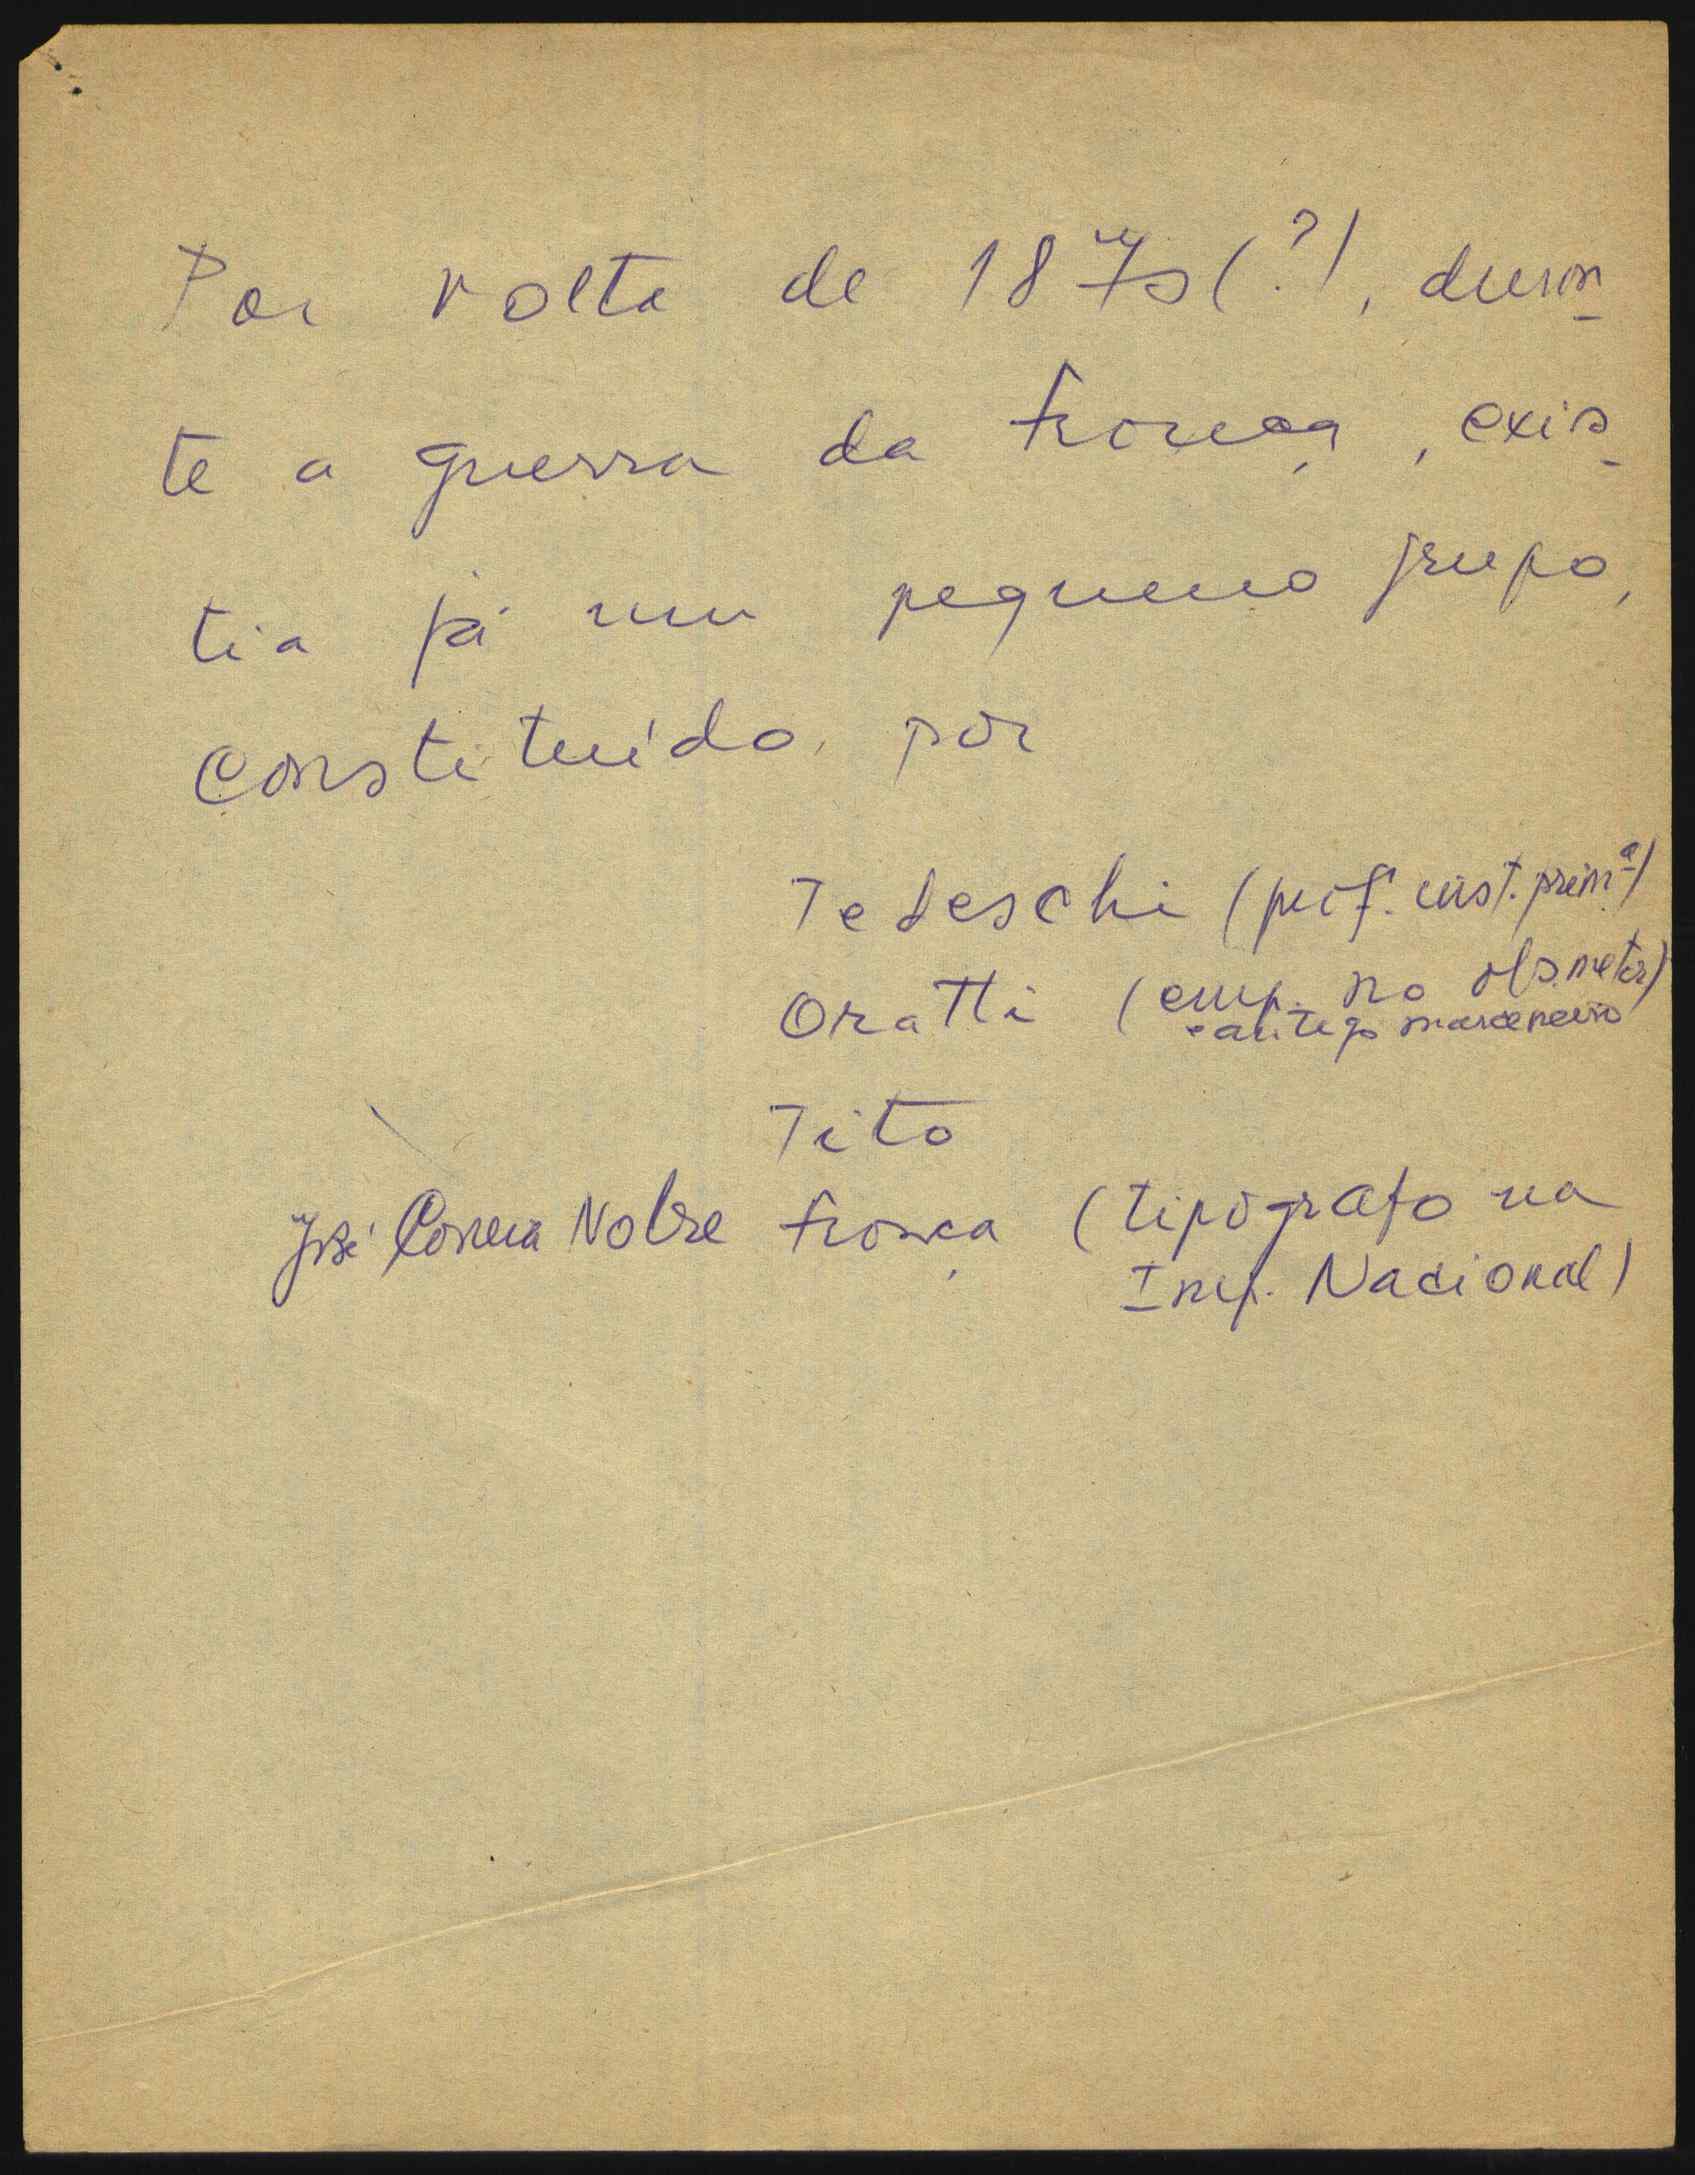 Por volta de 1870(?), duran
te a guerra da frança, exis
tia já um pequeno grupo,
constituido por
Tedeschi (prof. inst. primª)
Oratti (emp. no obs. meteor)
e antigo marceneiro
Tito
José Correia Nobre França (tipógrafo na
Imp. Nacional)